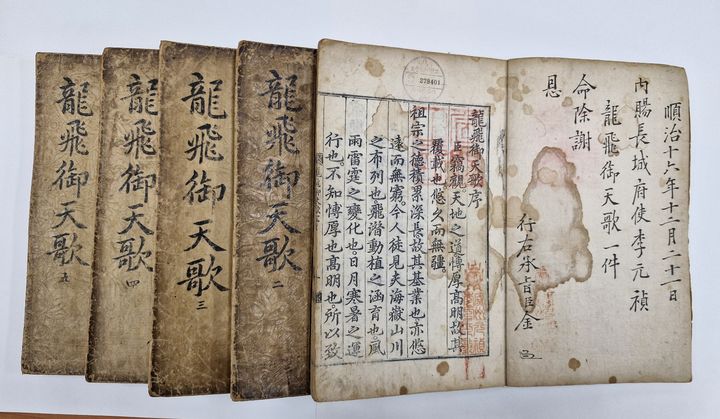 順治十六年十二月二十一日
內賜長城府使李元禎
龍飛御天歌一件
命除謝
恩
行左承旨臣金
龍飛御天歌序
臣竊觀天地之道博厚高明故其
覆載也悠久而無疆
祖宗之德積累深長故其基業也亦悠
遠而無窮今人徒見夫海嶽山川
之布列也飛潛動植之涵育也風
雨雷霆之變化也日月寒暑之運
行也不知博厚也高明也所以致
龍飛御天歌 二
龍飛御天歌 三
龍飛御天歌 四
龍飛御天歌 五